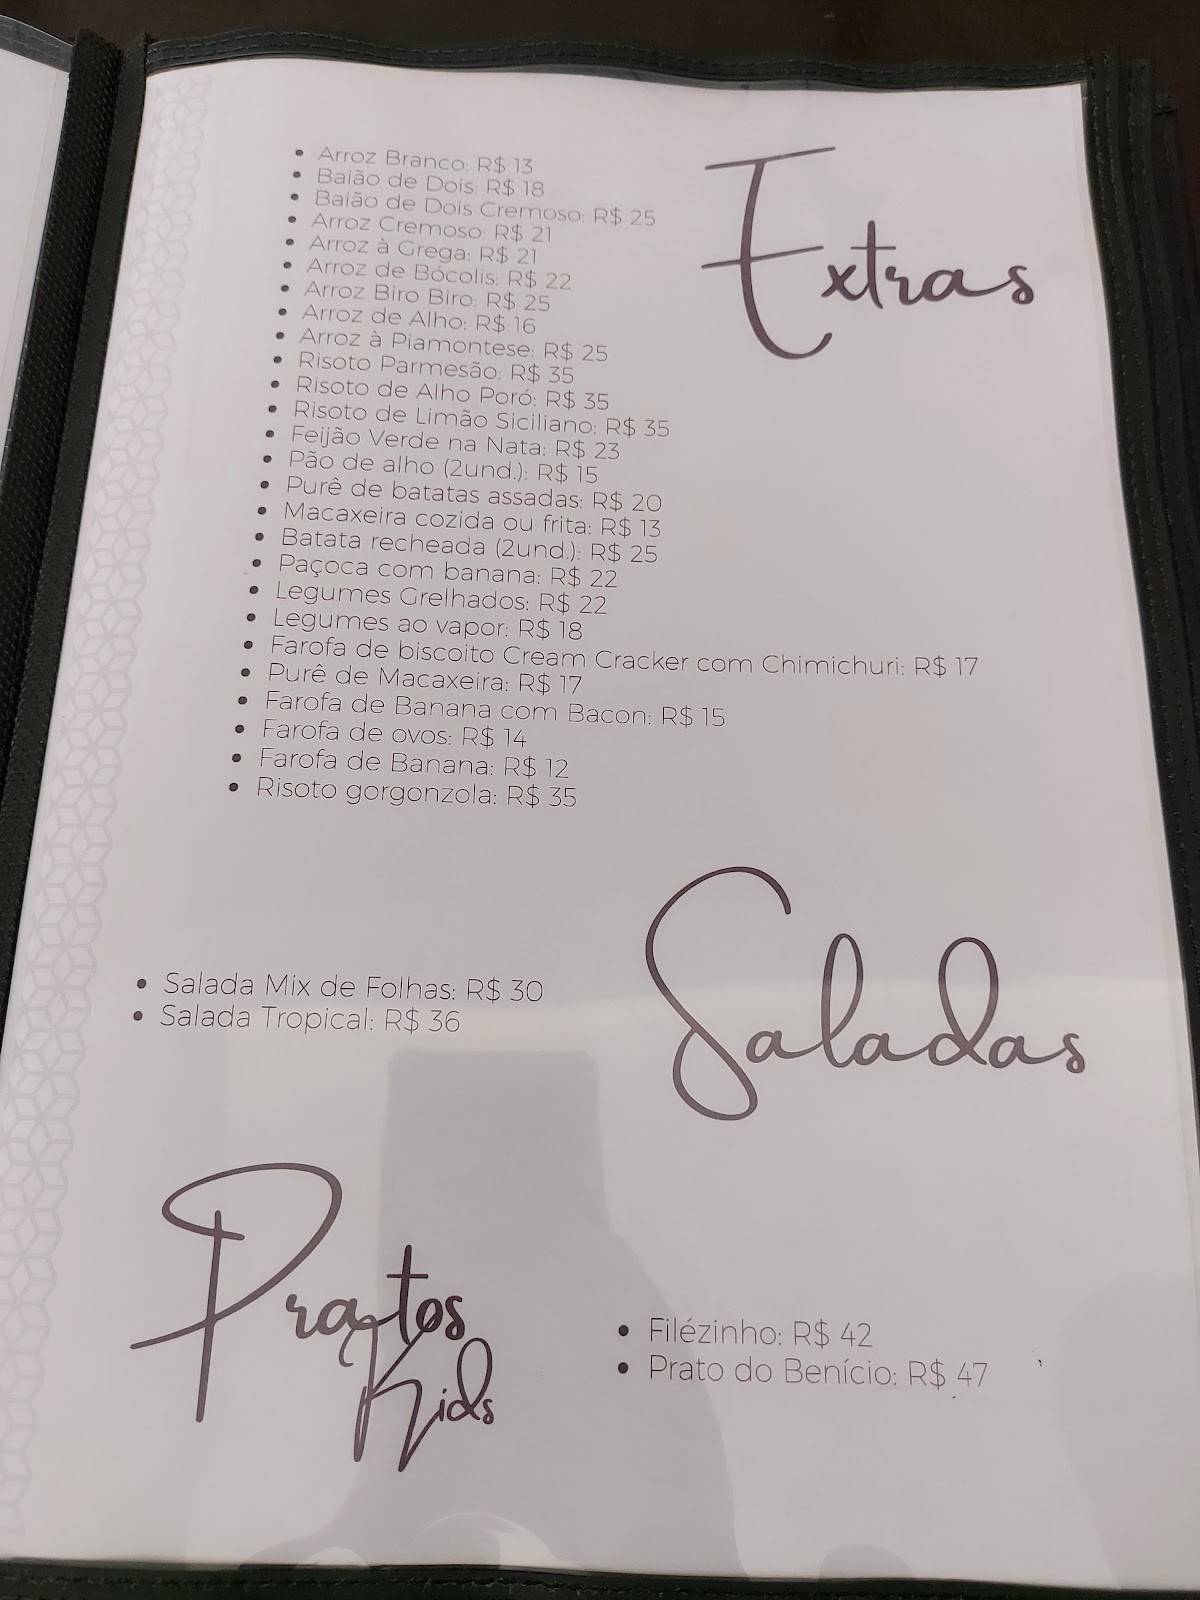 Extras
Arroz Branco: R$ 13
Baião de Dois: R$ 18
Baião de Dois Cremoso: R$ 25
Arroz Cremoso: R$ 21
Arroz à Grega: R$ 21
Arroz de Bócolis: R$ 22
Arroz Biro Biro: R$ 25
Arroz de Alho: R$ 16
Arroz à Piamontese: R$ 25
Risoto Parmesão: R$ 35
Risoto de Alho Poró: R$ 35
Risoto de Limão Siciliano: R$ 35
Feijão Verde na Nata: R$ 23
Pão de alho (2und.): R$ 15
Purê de batatas assadas: R$ 20
Macaxeira cozida ou frita: R$ 13
Batata recheada (2und.): R$ 25
Paçoca com banana: R$ 22
Legumes Grelhados: R$ 22
Legumes ao vapor: R$ 18
Farofa de biscoito Cream Cracker com Chimichuri: R$ 17
Purê de Macaxeira: R$ 17
Farofa de Banana com Bacon: R$ 15
Farofa de ovos: R$ 14
Farofa de Banana: R$ 12
Risoto gorgonzola: R$ 35
Saladas
Salada Mix de Folhas: R$ 30
Salada Tropical: R$ 36
Pratos
Kids
Filézinho: R$ 42
Prato do Benício: R$ 47